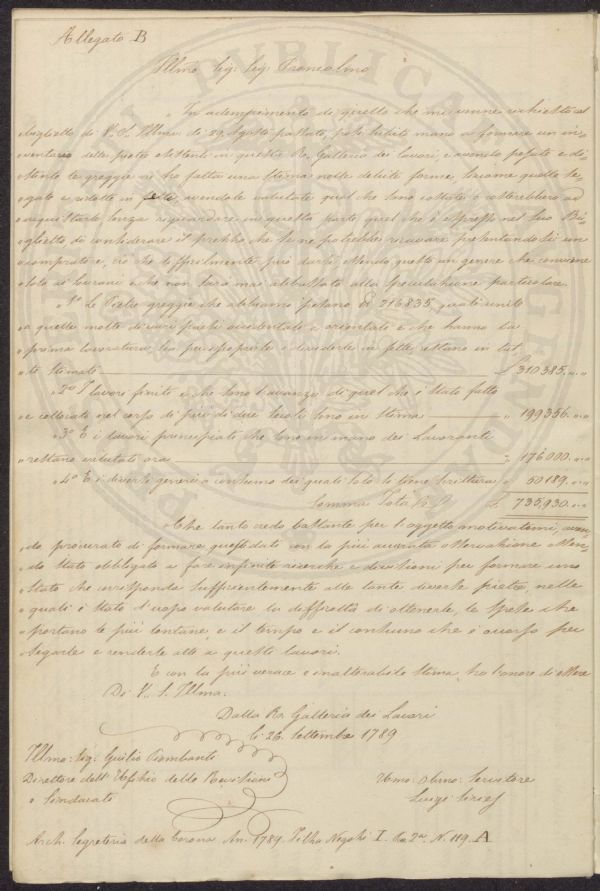 Allegato B
Illmo Sig: Sig: Proncolmo
" In adempimento di quello che mi venne richiesto col
" biglietto di V. S. Illma di 29. Agosto passato, posi subito mano a formare un in=
" ventario delle pietre esistenti in questa R. Galleria dei lavori, e avendo pesate e di=
" stinte le greggie ne ho fatta una stima nelle debite forme, siccome quelle se=
" gate e ridotte in fette, avendole valutate quel che sono costate, o costerebbero ad
" acquistarle senza riguardare in questa parte quel che è espresso nel suo Bi=
" glietto, di considerare il prezzo, che se ne potrebbe ricavare presentandosi un
" compratore, ciò che difficilmente può darsi essendo questo un genere che conviene
" solo ai Sovrani e che non sarà mai adattato alla speculazione particolare.
" 1º Le Pietre greggie che abbiamo pesano 216835, quali unite
" a quelle molte di vari paesi occidentali e orientali e che hanno la
" prima lavoratura, sia per spepparle e dividerle in fette restano in tut
" to stimate £ 310385. " "
" 2º I lavori finiti e che sono l'avanzo di quel che è stato fatto
" e collocato nel corso di più di due Secoli sono in stima " 199356. " "
" 3º E i lavori principiati che sono in mano dei Lavoranti
" restano valutati ora " 176000. " "
" 4º E i diversi generi a consumo dei quali solo si tiene scrittura " 50189. " "
Somma Tota £ 735,930. " "
" Che tanto credo bastante per l'oggetto motivatomi, aven=
" do procurato di formare questi dati con la più accurata osservazione essen=
" do stato obbligato a fare infinite ricerche e divisioni per formare uno
" Stato che corrisponda sufficientemente alle tante diverse pietre, nelle
" quali è stato d'uopo valutare la difficoltà di ottenerle, le spese che
" portano le più lontane, e il tempo e il consumo che è occorso per
" segarle e renderle atte a questi lavori.
E con la più verace e inalterabile stima, ho l'onore di essere
Di V. S. Illma:
Dalla R. Galleria dei Lavori
li 26. Settembre 1789
Illmo: Sig: Giulio Piombanti
Direttore dell'Uffizio delle Revisioni
e Sindacati
Umo: Obmo: Servitore
Luigi Siries
Arch. Segreteria della Corona An. 1789. Filza Negozi I. N. 119. A